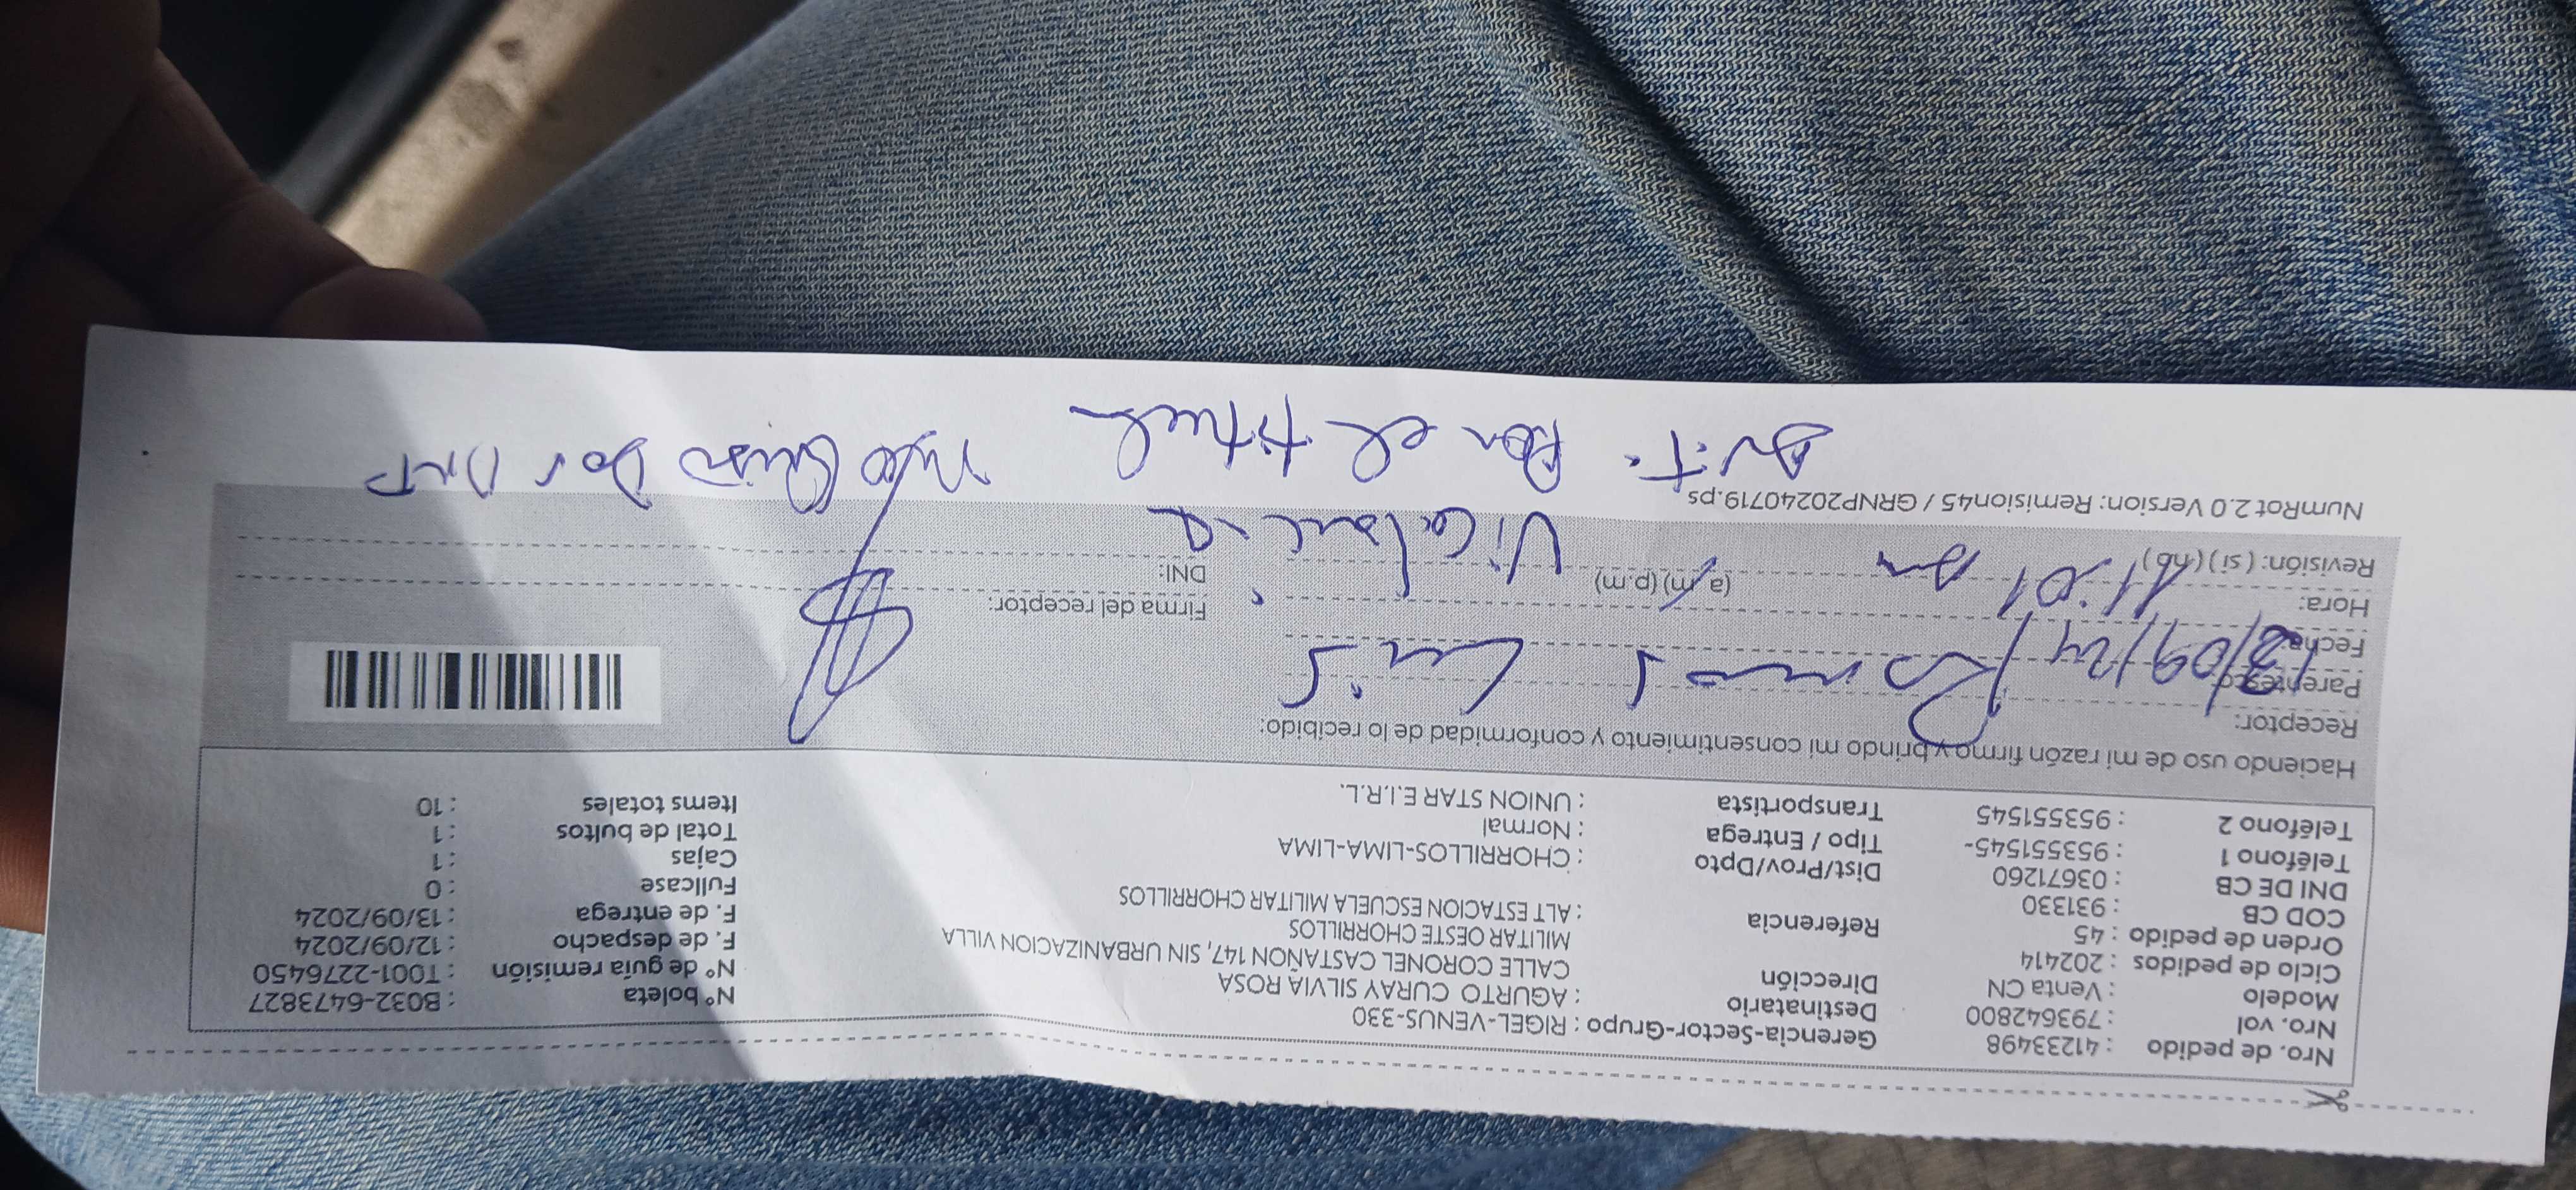 Nro. de pedido : 41233498
Nro. vol : 793642800
Modelo : Venta CN
Ciclo de pedidos : 202414
Orden de pedido : 45
COD CB : 931330
DNI DE CB : 03671260
Teléfono 1 : 953551545-
Teléfono 2 : 953551545
Gerencia-Sector-Grupo : RIGEL-VENUS-330
Destinatario : AGURTO CURAY SILVIA ROSA
Dirección CALLE CORONEL CASTAÑON 147, SIN URBANIZACION VILLA
MILITAR OESTE CHORRILLOS
Referencia : ALT ESTACION ESCUELA MILITAR CHORRILLOS
Dist/Prov/Dpto : CHORRILLOS-LIMA-LIMA
Tipo / Entrega : Normal
Transportista : UNION STAR E.I.R.L.
N° boleta : B032-6473827
N° de guía remisión : T001-2276450
F. de despacho : 12/09/2024
F. de entrega : 13/09/2024
Fullcase : 0
Cajas : 1
Total de bultos : 1
Items totales : 10
Haciendo uso de mi razón firmo y brindo mi consentimiento y conformidad de lo recibido:
Receptor:
Parentesco: Ramos Luis
Fecha: 13/09/24
Hora: 11:01 am (a.m) (p.m)
Revisión: (si) (no)
Firma del receptor:
DNI:
NumRot 2.0 Version: Remision45 / GRNP20240719.ps
Aut. Por el titular
no quiso Dar DNI